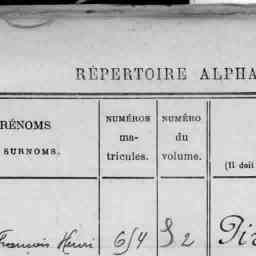 RÉPERTOIRE ALPHA
RÉNOMS
SURNOMS.
NUMÉROS
ma-
tricules.
NUMÉRO
du
volume.
(Il doit
François Henri 614 2